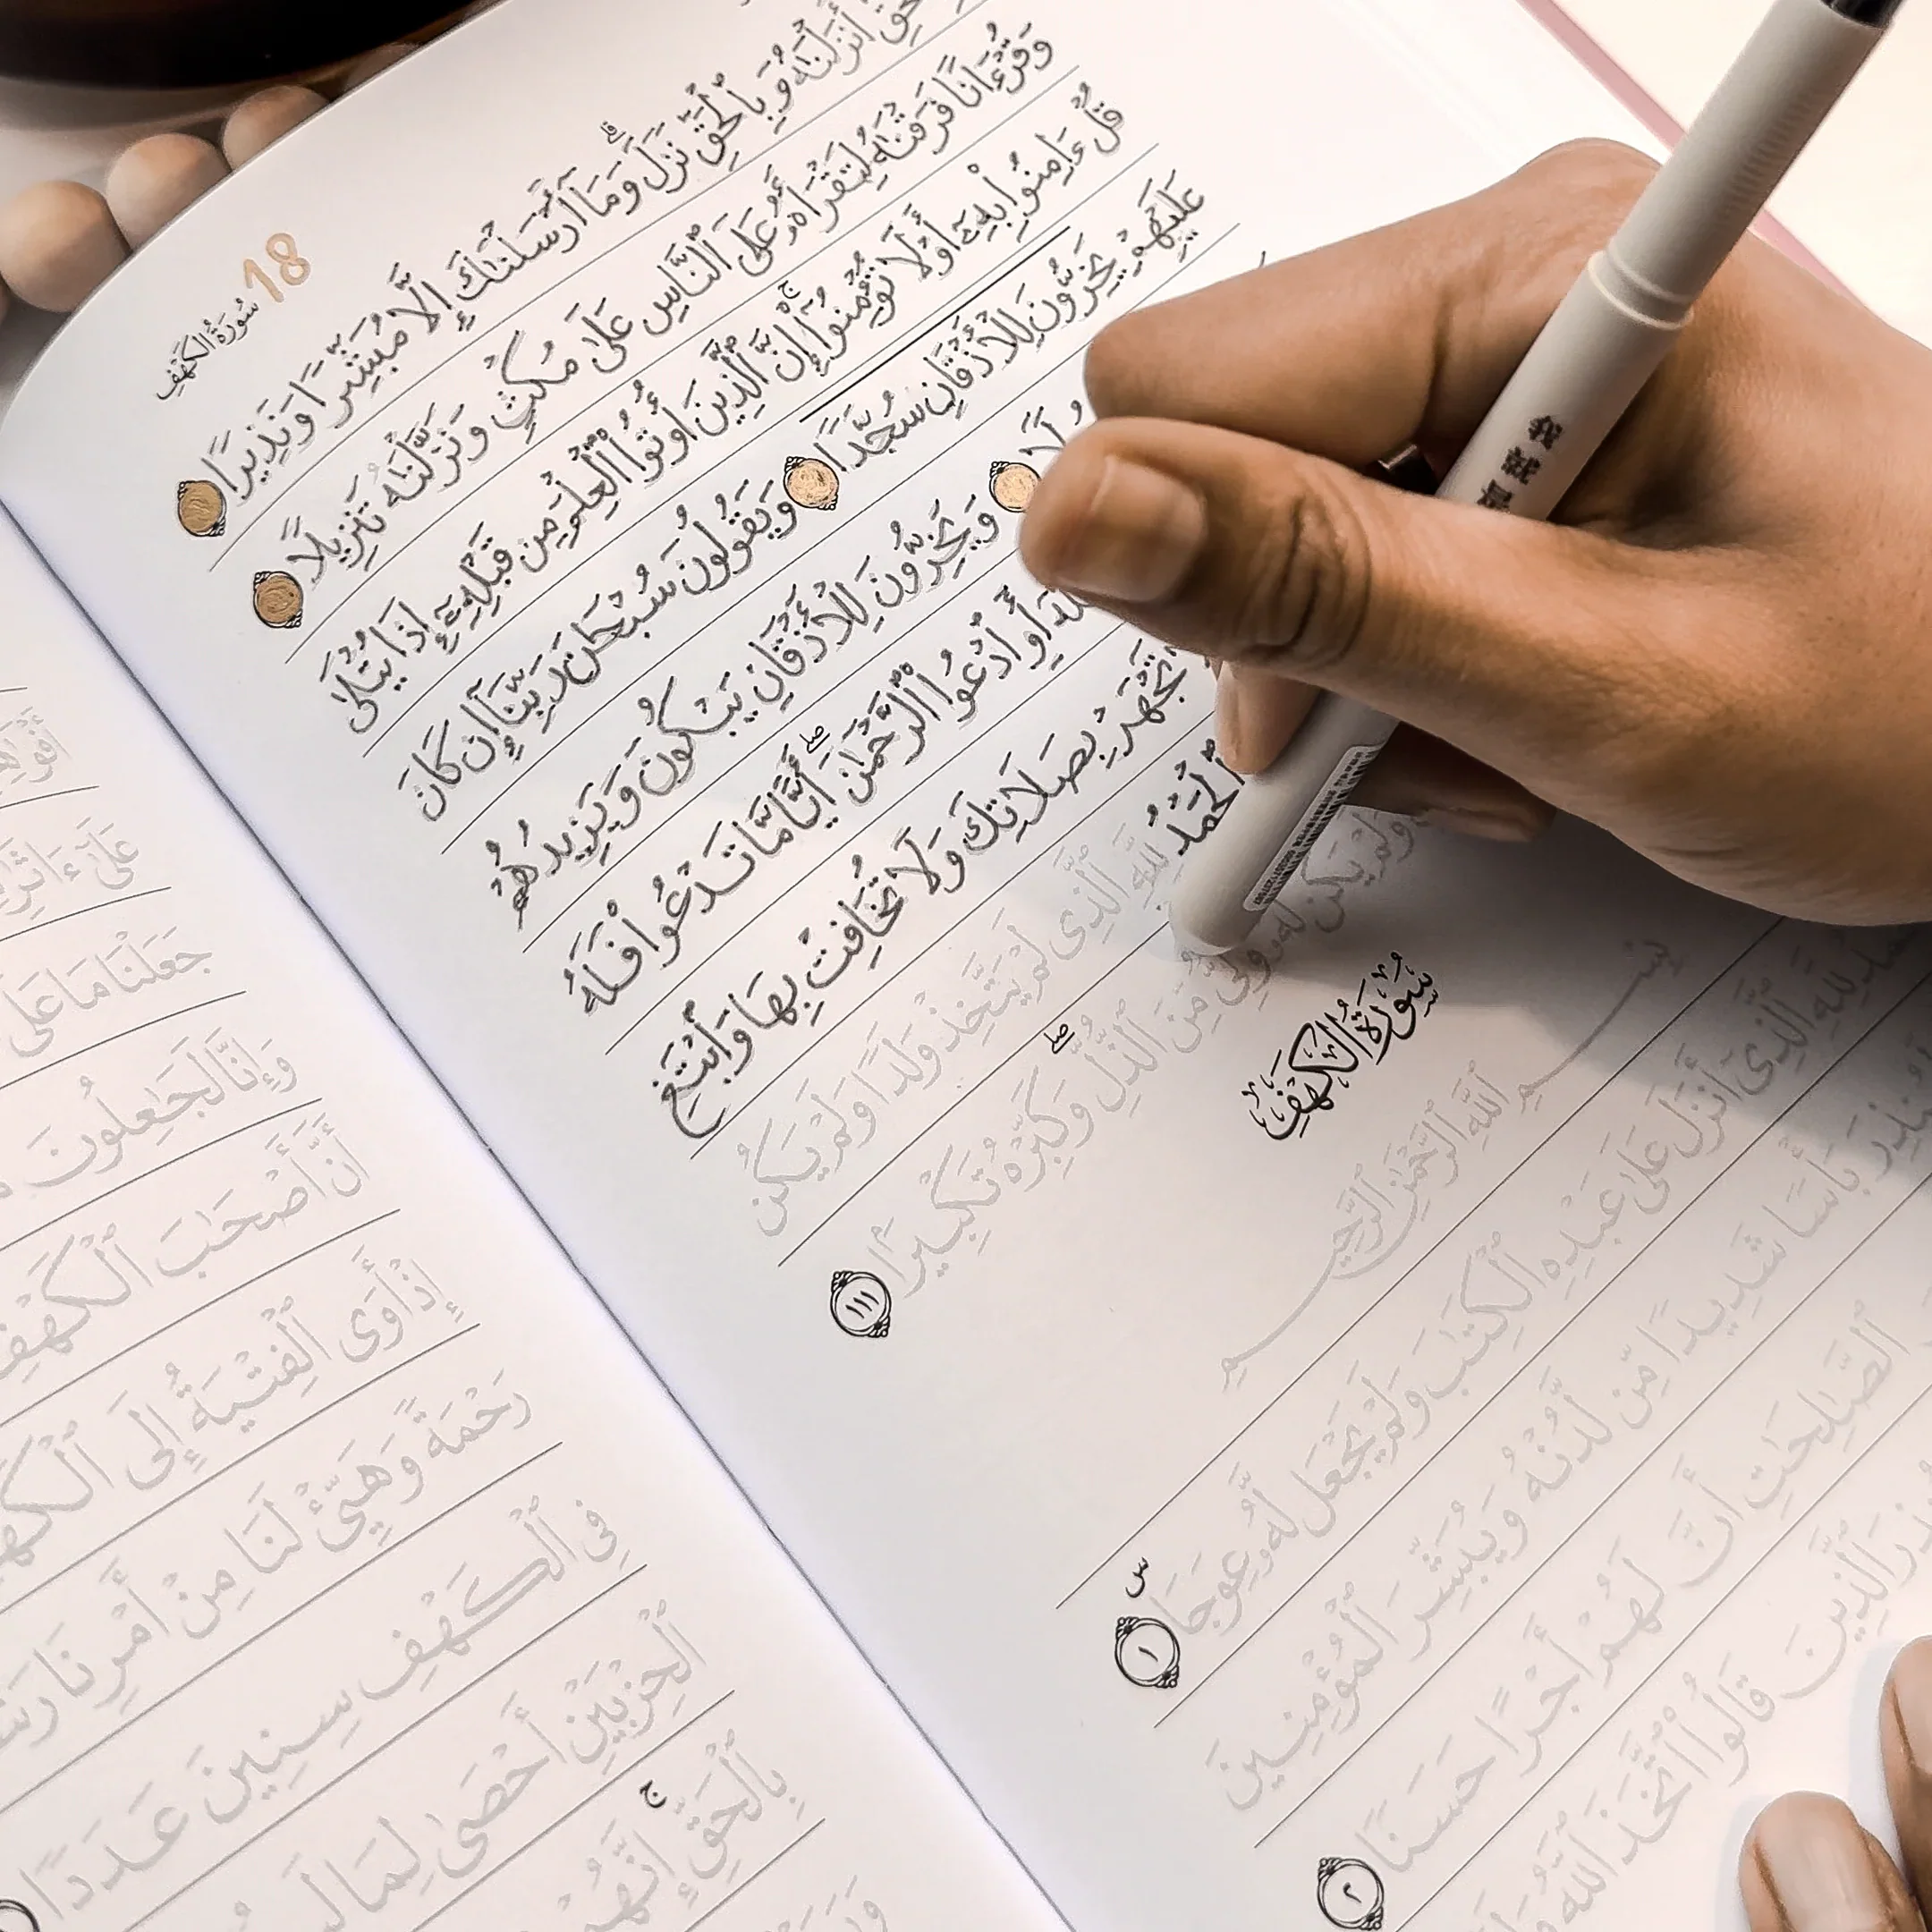 18
سُورَةُ الْكَهْفِ
أَنزَلْنَٰهُ وَبِٱلْحَقِّ نَزَلَ ۗ وَمَآ أَرْسَلْنَٰكَ إِلَّا مُبَشِّرًا وَنَذِيرًا
وَقُرْءَانًا فَرَقْنَٰهُ لِتَقْرَأَهُۥ عَلَى ٱلنَّاسِ عَلَىٰ مُكْثٍ وَنَزَّلْنَٰهُ تَنزِيلًا
قُلْ ءَامِنُوا۟ بِهِۦٓ أَوْ لَا تُؤْمِنُوٓا۟ ۚ إِنَّ ٱلَّذِينَ أُوتُوا۟ ٱلْعِلْمَ مِن قَبْلِهِۦٓ إِذَا يُتْلَىٰ
عَلَيْهِمْ يَخِرُّونَ لِلْأَذْقَانِ سُجَّدًا وَيَقُولُونَ سُبْحَٰنَ رَبِّنَآ إِن كَانَ
وَيَخِرُّونَ لِلْأَذْقَانِ يَبْكُونَ وَيَزِيدُهُمْ
أَوِ ٱدْعُوا۟ ٱلرَّحْمَٰنَ ۖ أَيًّا مَّا تَدْعُوا۟ فَلَهُ
تَجْهَرْ بِصَلَاتِكَ وَلَا تُخَافِتْ بِهَا وَٱبْتَغِ
ٱلْحَمْدُ لِلَّهِ ٱلَّذِى لَمْ يَتَّخِذْ وَلَدًا وَلَمْ يَكُن
وَلَمْ يَكُن لَّهُۥ وَلِىٌّ مِّنَ ٱلذُّلِّ ۖ وَكَبِّرْهُ تَكْبِيرًۢا ١١١
سُورَةُ الْكَهْفِ
بِسْمِ ٱللَّهِ ٱلرَّحْمَٰنِ ٱلرَّحِيمِ
لِلَّهِ ٱلَّذِىٓ أَنزَلَ عَلَىٰ عَبْدِهِ ٱلْكِتَٰبَ وَلَمْ يَجْعَل لَّهُۥ عِوَجَا ۜ ١
بَأْسًا شَدِيدًا مِّن لَّدُنْهُ وَيُبَشِّرَ ٱلْمُؤْمِنِينَ
ٱلصَّٰلِحَٰتِ أَنَّ لَهُمْ أَجْرًا حَسَنًا ٢
ٱلَّذِينَ قَالُوا۟ ٱتَّخَذَ ٱللَّهُ
جَعَلْنَا مَا عَلَى
وَإِنَّا لَجَٰعِلُونَ
أَنَّ أَصْحَٰبَ ٱلْكَهْفِ
إِذْ أَوَى ٱلْفِتْيَةُ إِلَى ٱلْكَهْفِ
رَحْمَةً وَهَيِّئْ لَنَا مِنْ أَمْرِنَا
فِى ٱلْكَهْفِ سِنِينَ عَدَدًا
ٱلْحِزْبَيْنِ أَحْصَىٰ لِمَا
بِٱلْحَقِّ ۚ إِنَّهُمْ